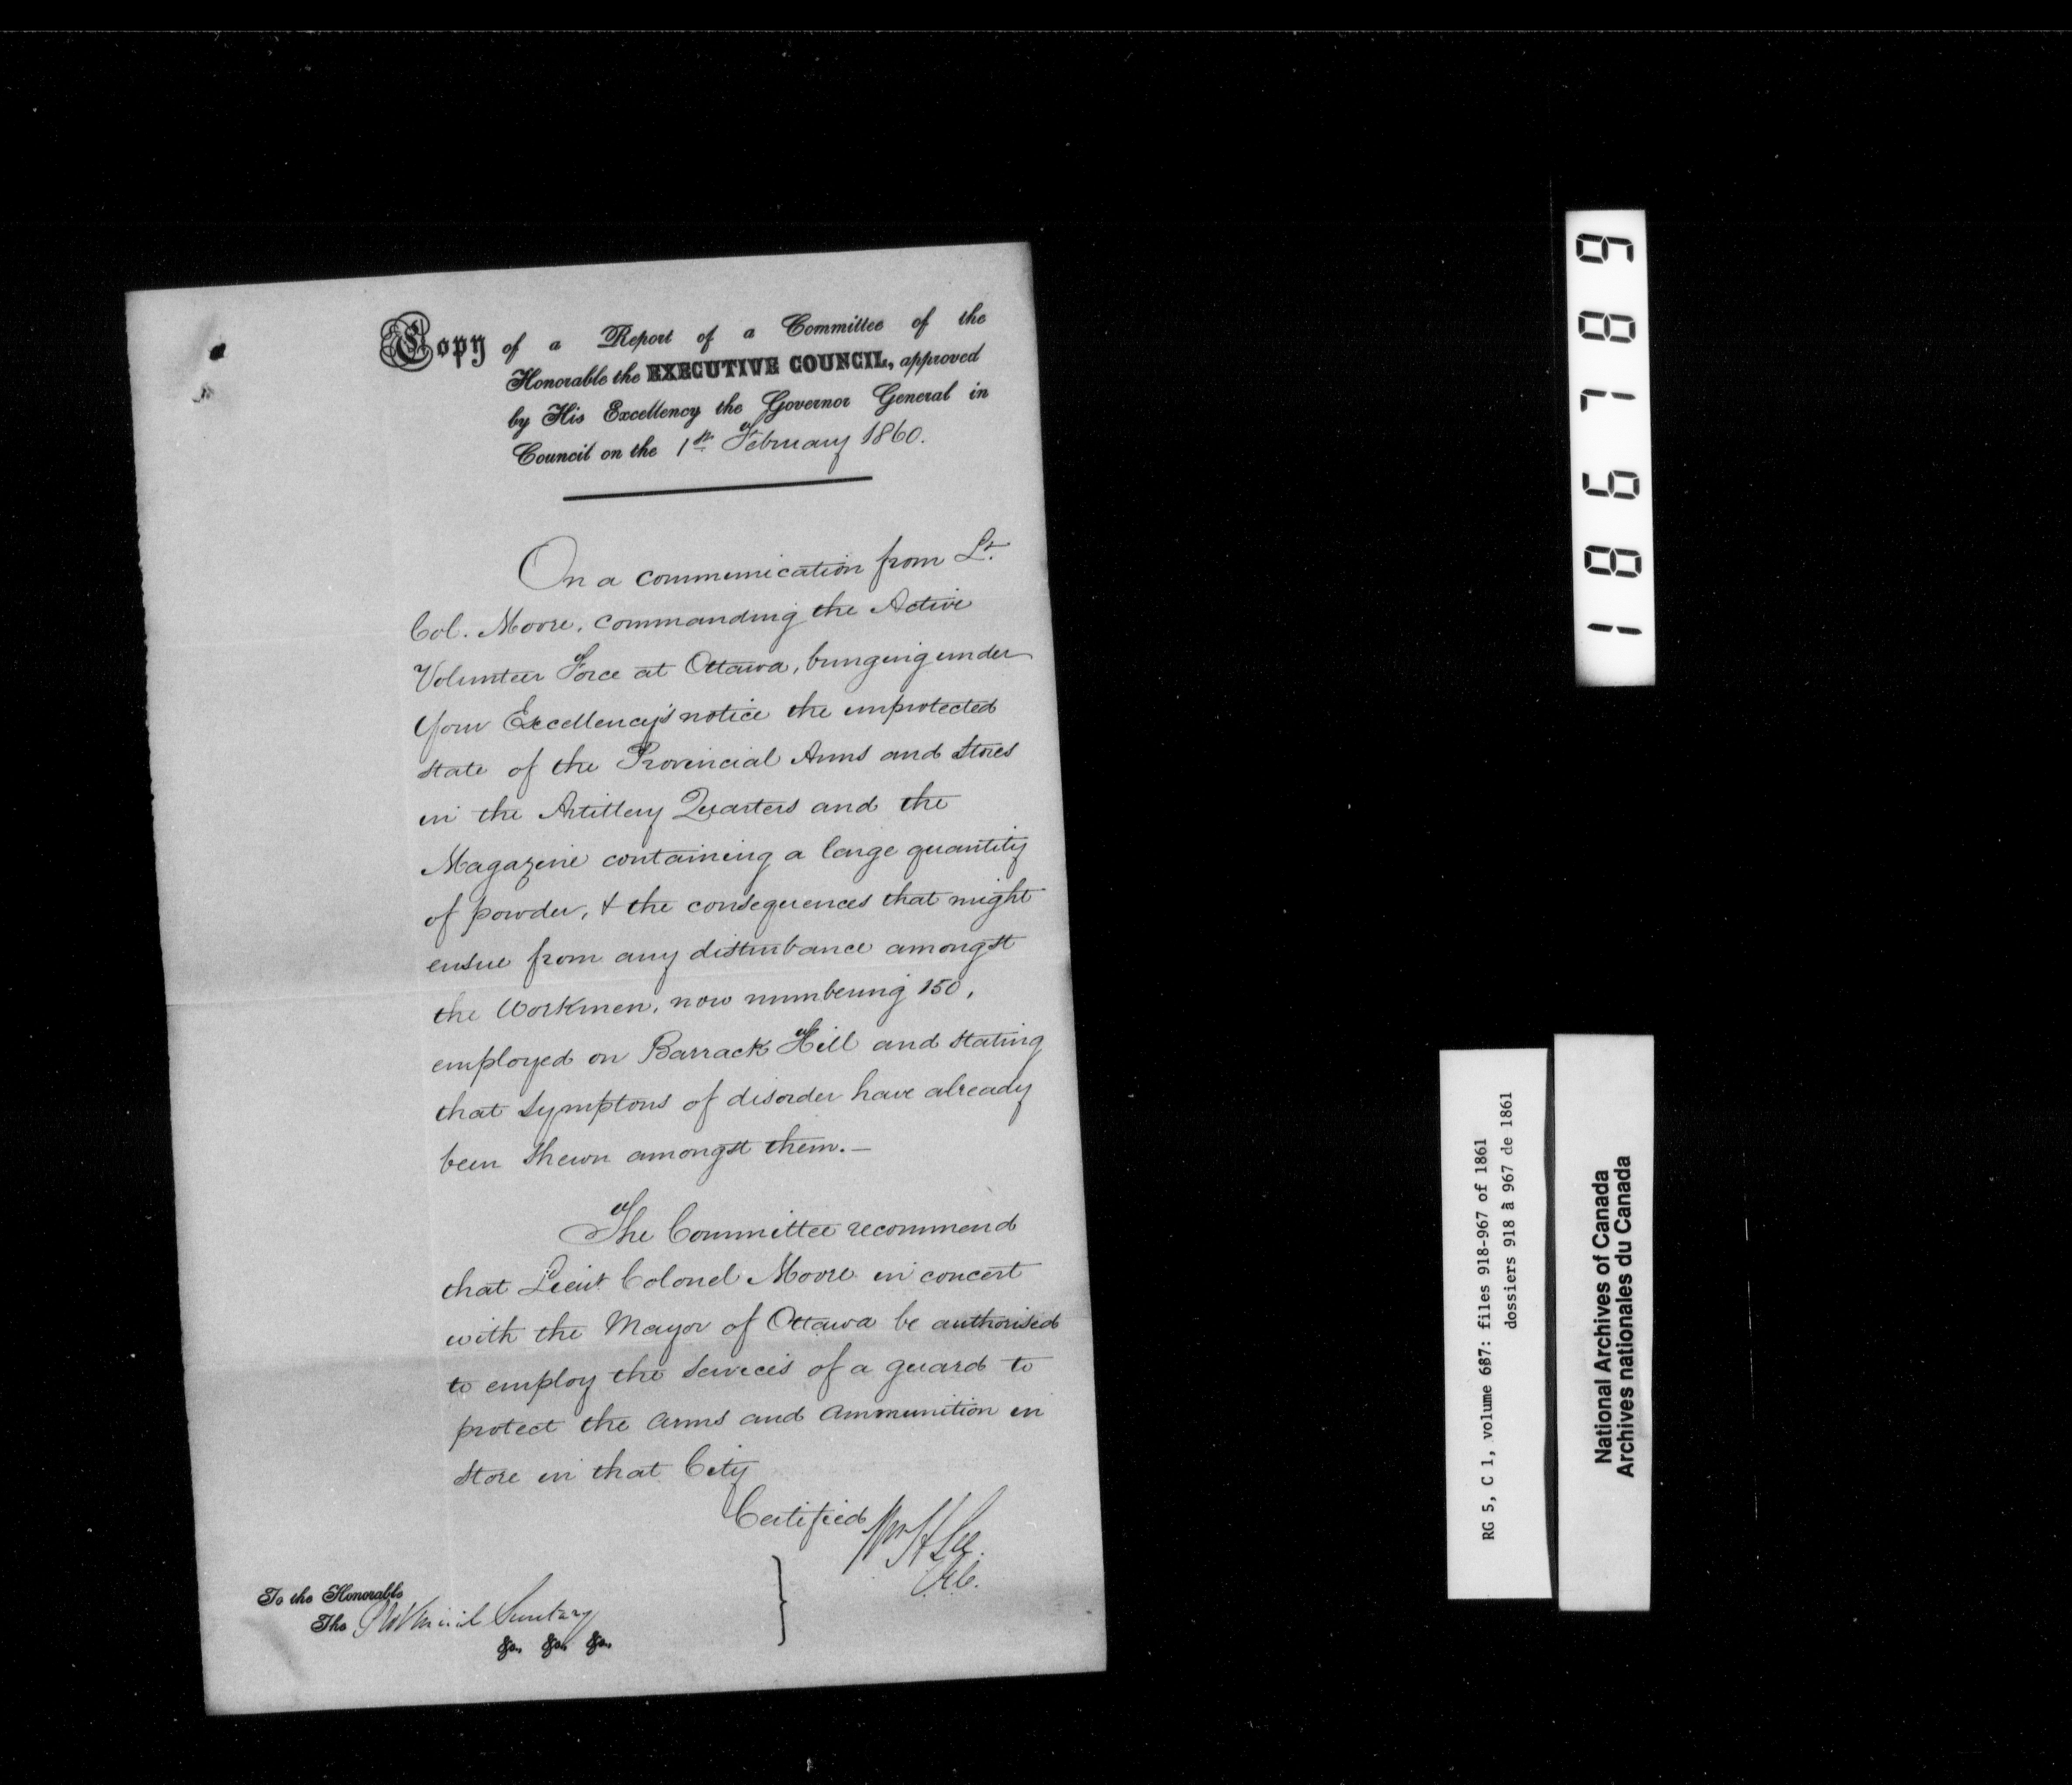 Copy of a Report of a Committee of the
Honorable the EXECUTIVE COUNCIL, approved
by His Excellency the Governor General in
Council on the 1st February 1860.
On a communication from Lt.
Col. Moore, commanding the Active
Volunteer Force at Ottawa, bringing under
Your Excellency's notice the unprotected
state of the Provincial Arms and Stores
in the Artillery Quarters and the
Magazine containing a large quantity
of powder, & the consequences that might
ensue from any disturbance amongst
the Workmen, now numbering 150,
employed on Barrack Hill and stating
that symptons of disorder have already
been shewn amongst them.—
The Committee recommend
that Lieut Colonel Moore in concert
with the Mayor of Ottawa be authorised
to employ the services of a guard to
protect the arms and ammunition in
store in that City
Certified
Wm H Lee.
C.E.C.
To the Honorable
The Provincial Secretary
&c. &c. &c.
186789
RG 5, C 1, volume 687: files 918-967 of 1861
dossiers 918 à 967 de 1861
National Archives of Canada
Archives nationales du Canada